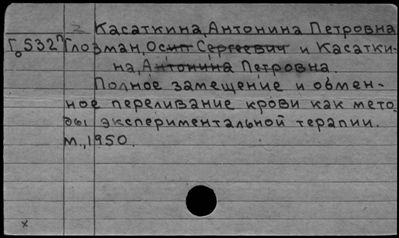 2 Касаткина, Антонина Петровна
Го532п Глозман, Осип Сергеевич и Касатки-
на, Антонина Петровна.
Полное замещение и обмен-
ное переливание крови как мето-
ды экспериментальной терапии.
М., 1950.
x